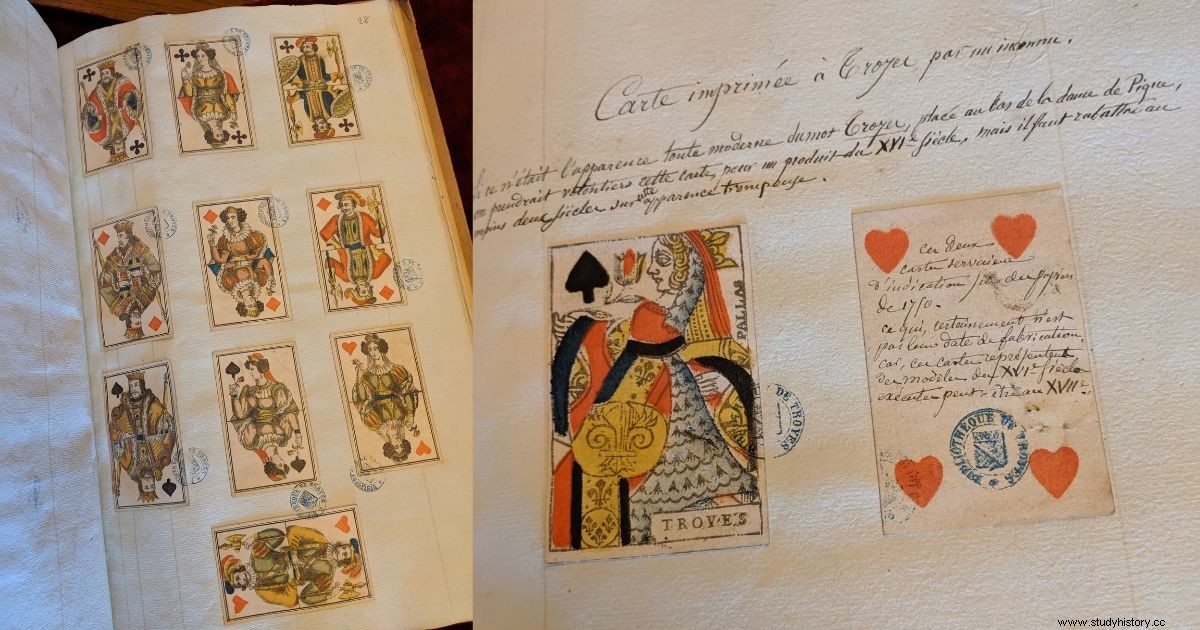 28
Carte imprimée à Troyes par un inconnu.
ce n'était l'apparence toute moderne du mot Troyes, placé au bas de la dame de Pique,
on prendrait volontiers cette carte, pour un produit du XVIe Siècle, mais il faut rabattre au
moins deux siècles sur cette apparence trompeuse.
PALLAS
TROYES
DE TROYES
ces deux
cartes servaient
d'indication
de 1750.
ce qui, certainement n'est
pas leur date de fabrication,
car, ces cartes représentent
des modèles du XVIe Siècle
exécutés peut être au XVIIe.
BIBLIOTHÈQUE DE TROYES
www.studyhistory.cc